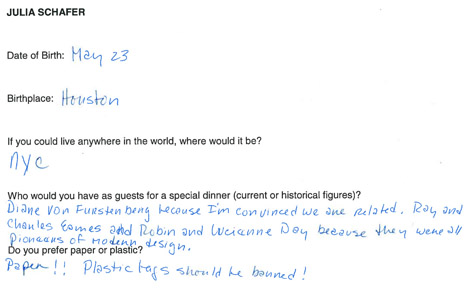 JULIA SCHAFER
Date of Birth: May 23
Birthplace: Houston
If you could live anywhere in the world, where would it be?
NYC
Who would you have as guests for a special dinner (current or historical figures)?
Diane Von Furstenberg because I'm convinced we are related. Ray and
Charles Eames and Robin and Lucianne Day because they were all
pioneers of modern design.
Do you prefer paper or plastic?
Paper!! Plastic bags should be banned!